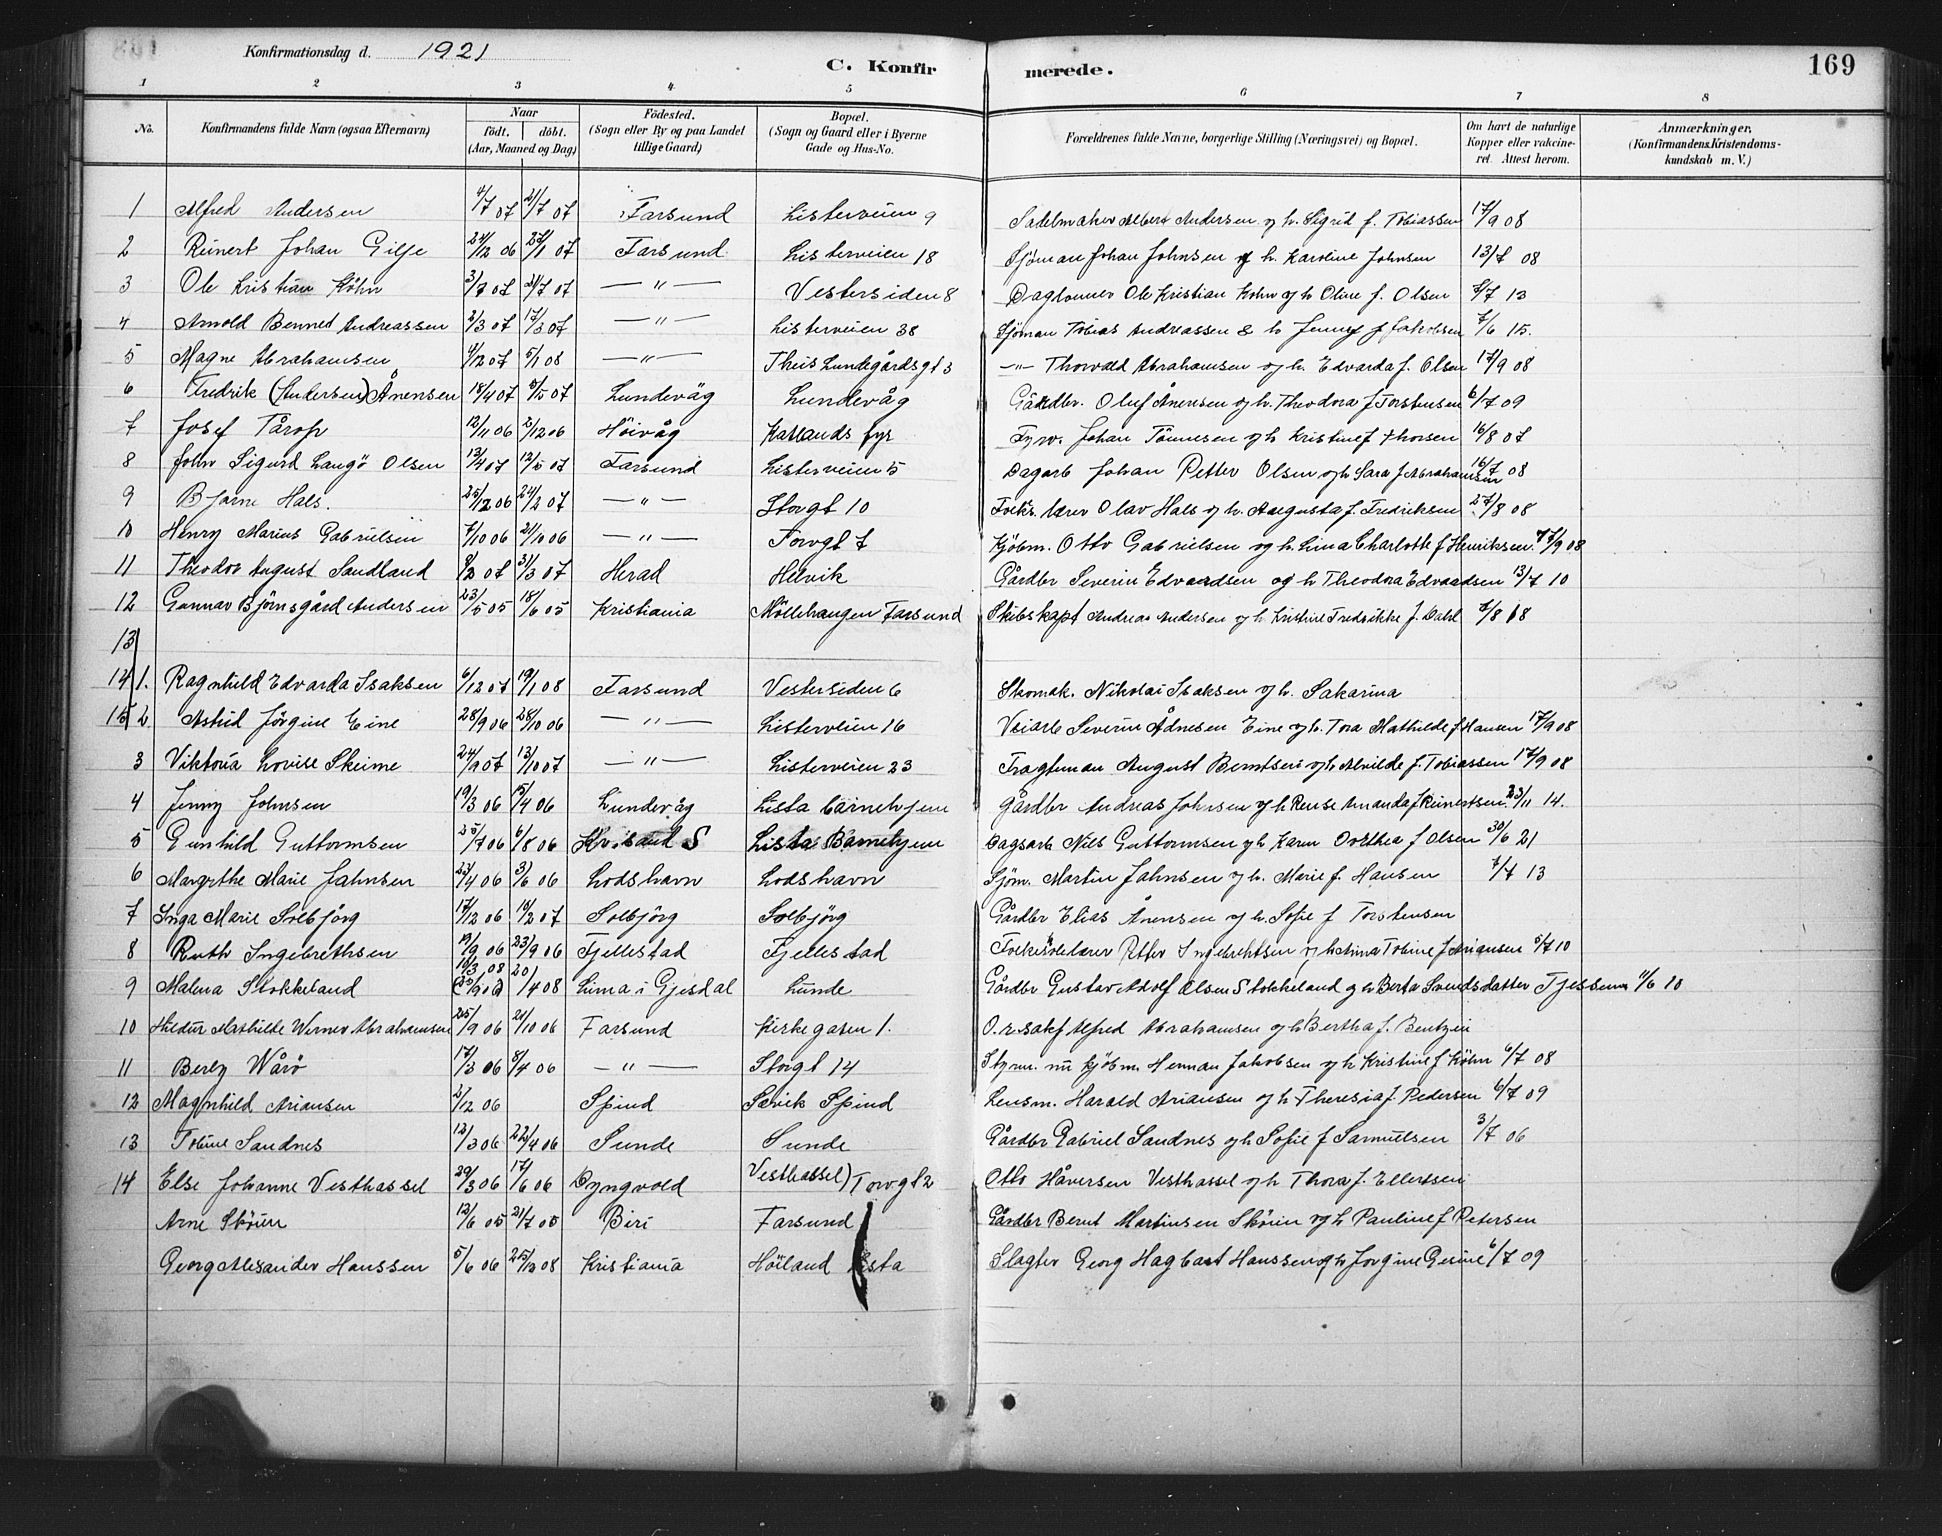 Konfirmationsdag d. 1921
C. Konfirmerede.
169
1 2 3 4 5 6 7 8
No. Konfirmandens fulde Navn (ogsaa Efternavn) Naar födt. döbt. (Aar, Maaned og Dag) Födested. (Sogn eller By og paa Landet tillige Gaard) Bopæl. (Sogn og Gaard eller i Byerne Gade og Hus-No. Forældrenes fulde Navne, borgerlige Stilling (Næringsvei) og Bopæl. Om havt de naturlige Kopper eller vakcineret. Attest herom. Anmærkninger. (Konfirmandens Kristendomskundskab m. V.)
1 Alfred Andersen 4/7 07 21/7 07 Farsund Listerveien 9 Sadelmaker Albert Andersen og h. Sigrid f. Tobiassen 17/9 08
2 Reinert Johan Gilje 24/12 06 27/1 07 Farsund Listerveien 18 Sjöman Johan Johnsen og h. Karoline Johnsen 13/7 08
3 Ole Kristian Köhn 3/7 07 21/7 07 — " — Vestersiden 8 Daglönner Ole Kristian Kohn og h Oline f. Olsen /7 13
4 Arnold Bennet Andreassen 2/3 07 17/3 07 — " — Listerveien 38 Sjöman Tobias Andreassen & h Jenny f Jakobsen 7/6 15.
5 Magne Abrahamsen 4/12 07 5/1 08 — " — Theis Lundegårdsgt 3 — " — Thorvald Abrahamsen og h. Edvarda f. Olsen 17/9 08
6 Fredrik (Andersen) Ånensen 18/4 07 5/5 07 Lundevåg Lundevåg Gårdbr. Oluf Ånensen og h. Theodora f Torstensen 6/7 09
7 Josef Tårop 12/11 06 2/12 06 Höivåg Katlands fyr Fyrv. Johan Tönnesen og h Kristine f Thorsen 16/8 07
8 John Sigurd Langö Olsen 13/4 07 12/5 07 Farsund Listerveien 5 Dagarb Johan Petter Olsen og h Sara f Abrahamsen 16/7 08
9 Bjarne Hals. 25/12 06 24/2 07 — " — Storgt 10 Folks. lærer Olav Hals og h. Augusta f. Fredriksen 27/8 08
10 Henry Marius Gabrielsen 7/10 06 21/10 06 — " — Torvgt 7 Kjöbm. Otto Gabrielsen og h. Lina Charlotte f Henriksen 17/9 08
11 Theodor August Sandland 9/2 07 31/3 07 Herad Helvik Gårdbr Severin Edvardsen og h Theodora Edvardsen 13/7 10
12 Gunnar Björnsgård Andersen 23/5 05 18/6 05 Kristiania Möllehaugen Farsund Skibskapt Andreas Andersen og h Kristine Fredrikke f. Dahl /8 18
13
14 1. Ragnhild Edvarda Isaksen 6/12 07 19/1 08 Farsund Vestersiden 6 Skomak. Nikolai Isaksen og h. Sakarina
15 2. Astrid Jörgine Eine 28/9 06 28/10 06 — " — Listerveien 16 Veiarb Severin Ådnesen Eine og h. Tora Mathilde f Hansen 17/9 08
3 Viktoria Lovise Skeime 24/9 07 13/10 07 — " — Listerveien 23 Fragtman August Berntsen og h Alvilde f. Tobiassen 17/9 08
4 Jenny Johnsen 19/3 06 15/4 06 Lundevåg Lista barnehjem Gårdbr Andreas Johnsen og h Rense Amanda f Reinertsen 23/11 14.
5 Gunhild Guttormsen 25/7 06 6/8 06 Kristiand S Lista Barnehjem Dagsarb Nils Guttormsen og h Karen Ovedthea f Olsen 30/6 21
6 Margrethe Marie Jahnsen 22/4 06 3/6 06 Lodshavn Lodshavn Sjöm. Martin Jahnsen og h. Marie f. Hansen /7 13
7 Inga Marie Solbjörg 17/12 06 10/2 07 Solbjörg Solbjörg Gårdbr Elias Ånensen og h. Sofie f Torstensen
8 Ruth Ingebrethsen 19/9 06 23/9 06 Fjellestad Fjellestad Folkeskolelærer Petter Ingebrehtsen og h Anna Tobine f Ariansen 5/7 10
9 Malena Stokkeland 10/3 08 20/4 08 Lima i Gjesdal Lunde Gårdbr Gustav Adolf Olsen Stokkeland og h Berta Svendsdatter Tjessem 11/6 10
10 Hildur Mathilde Werner Abrahamsen 25/9 06 21/10 06 Farsund Kirkegaten 1. O.r.sakf Alfred Abrahamsen og h Bertha f. Bentzen
11 Berly Wårö 17/3 06 8/4 06 — " — Storgt 14 Styrm. nu kjöbm. Herman Jakobsen og h Kristine f Köhn 6/7 08
12 Magnhild Ariansen 2/12 06 Spind Sævik Spind Lensm. Harald Ariansen og h Theresia f. Pedersen 6/7 09
13 Tobine Sandnes 12/3 06 22/4 06 Sunde Sunde Gårdbr Gabriel Sandnes og h Sofie f Samuelsen 3/7 06
14 Else Johanne Vesthassel 29/3 06 17/6 06 Lyngvold Vesthassel) Torvgt 2 Otto Håversen Vesthassel og h Thora f. Ellertsen
Arne Sköien 12/6 05 21/7 05 Biri Farsund Gårdbr Bernt Martinsen Sköien og h Pauline f Petersen
Georg Alexander Hanssen 5/6 06 25/12 08 Kristiania Höiland Lista Slagter Georg Hagbart Hanssen og h Jorgine Gurine 6/7 09